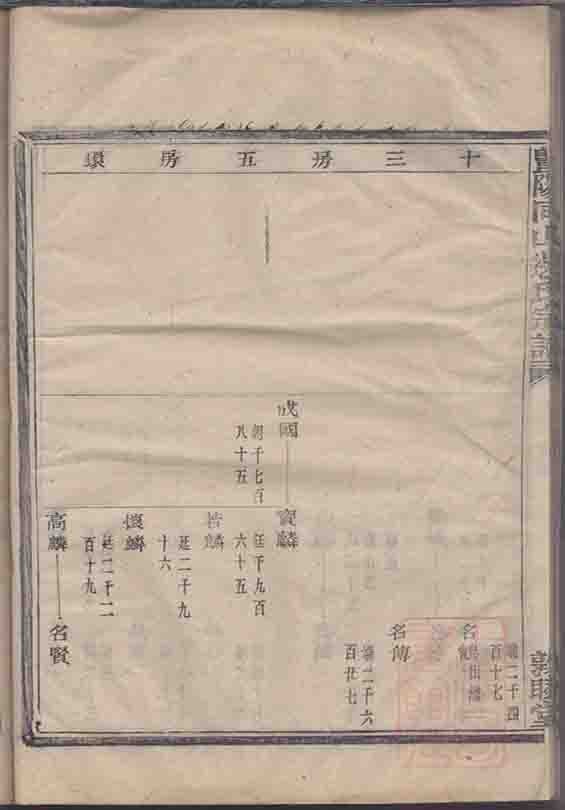 十三房五房環
暨陽南山趙氏宗譜
敦睦堂
二千四
百十七
名
名傅
二千六
百廿七
成國
千七百
八十五
寶麟
廷千九百
六十五
哲麟
廷二千九
十六
懷麟
廷二千二
百十九
高麟
名賢